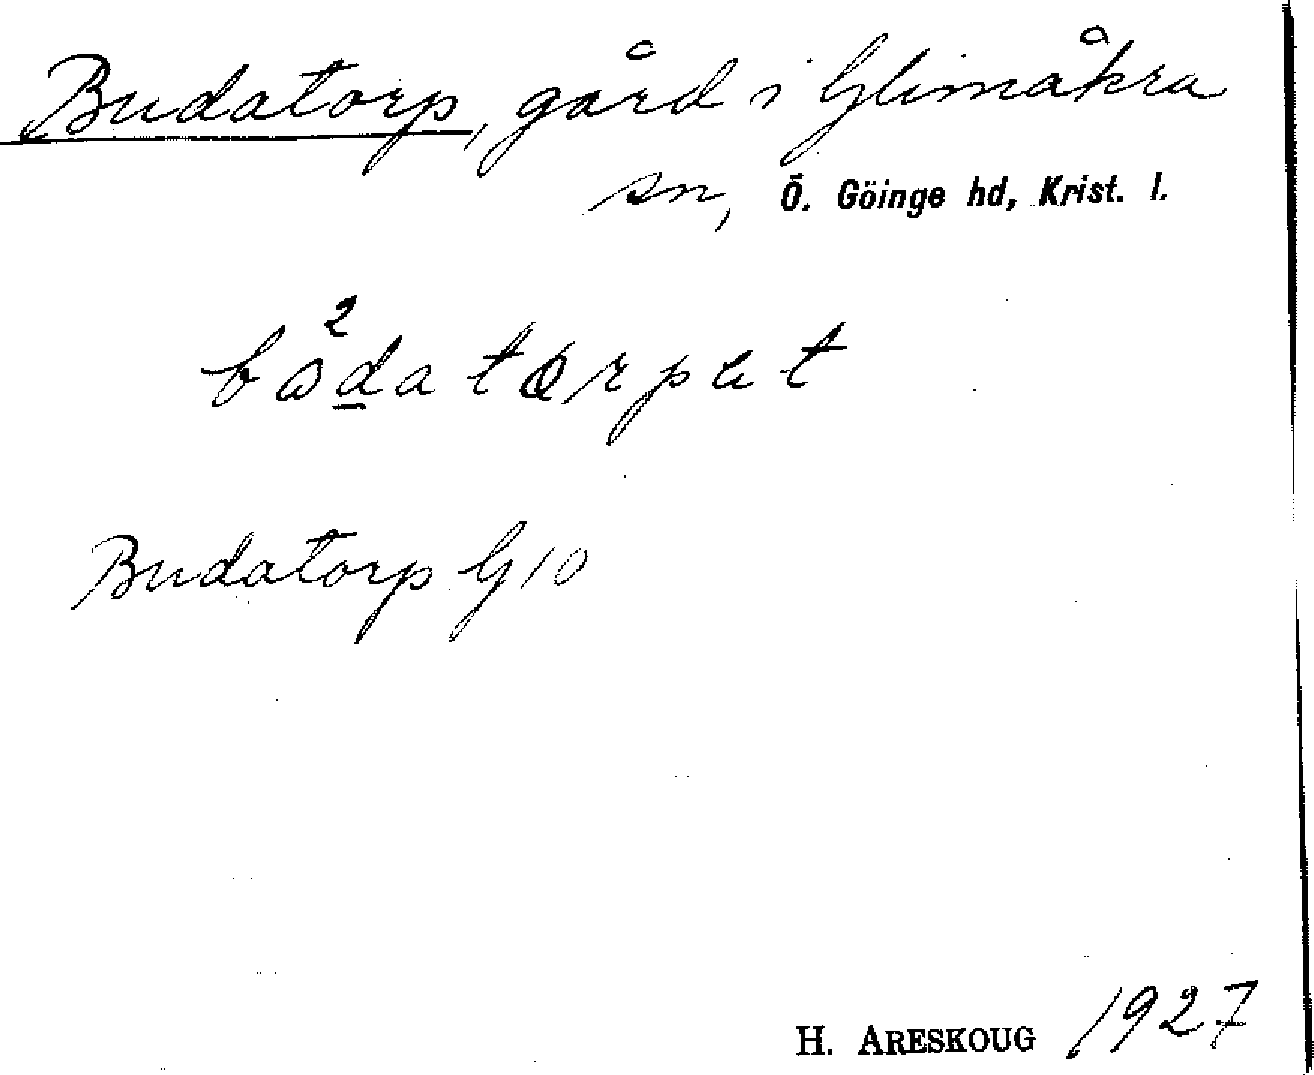 Budatorp, gård i Glimåkra
sn, Ö. Göinge hd, Krist. l.
Budatorp G 10
H. ARESKOUG 1927